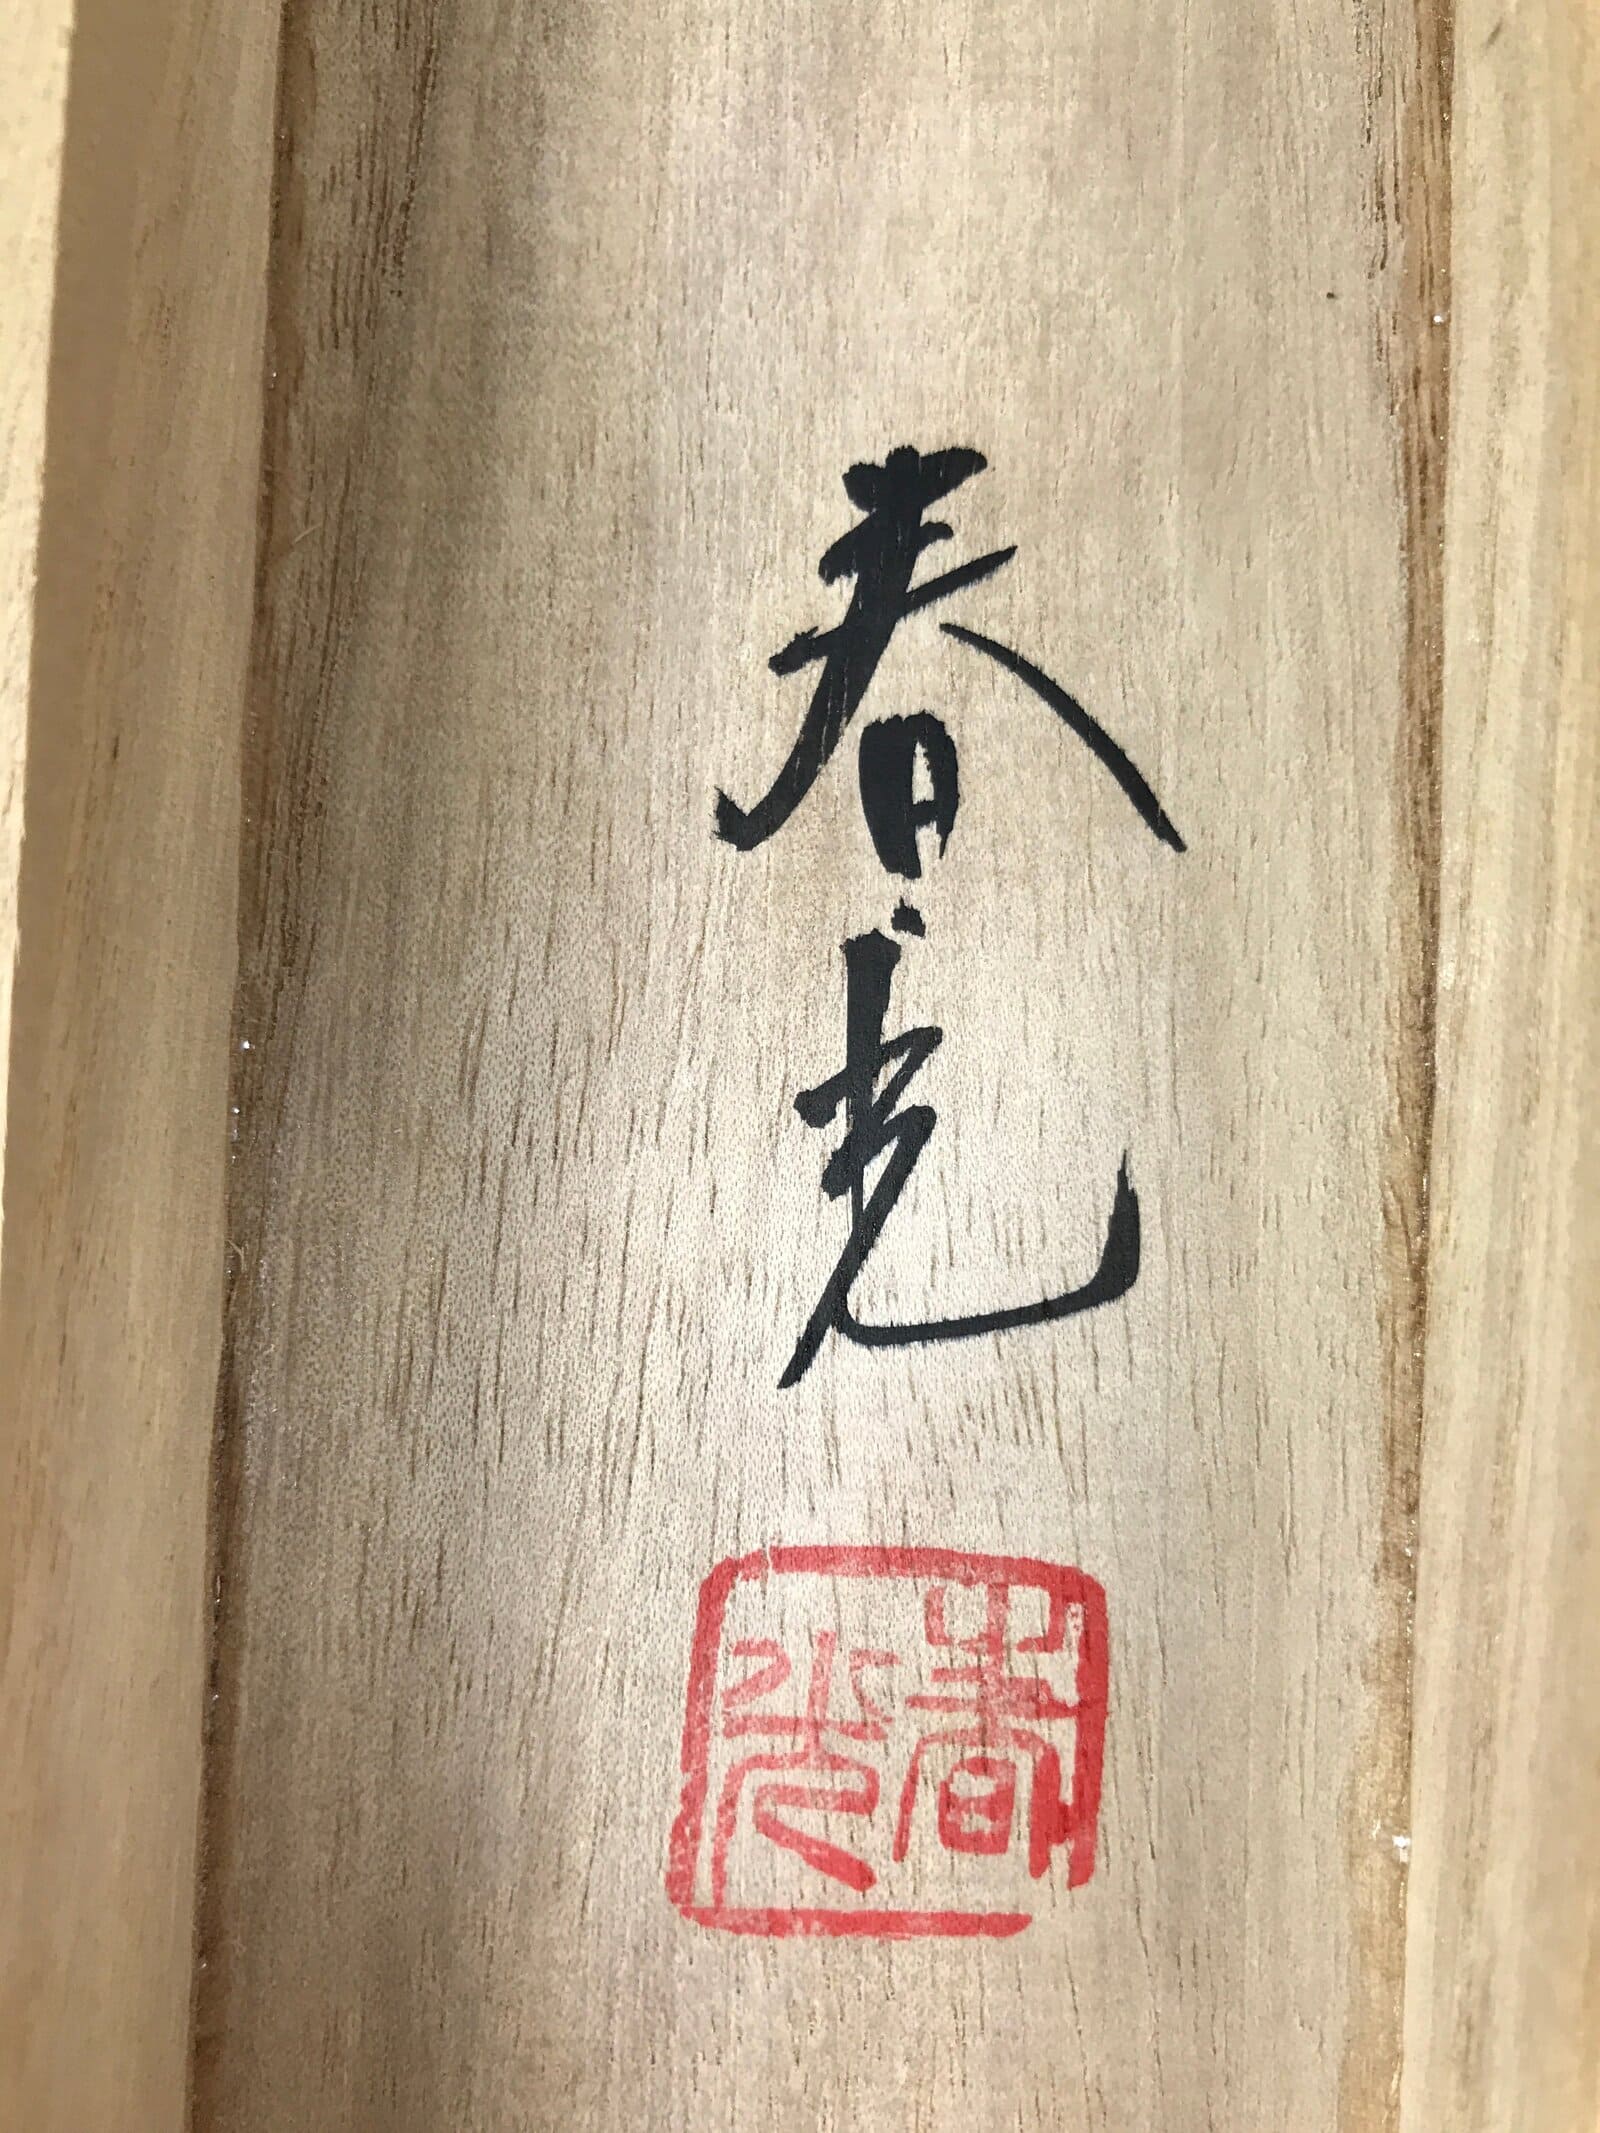 春光
春光